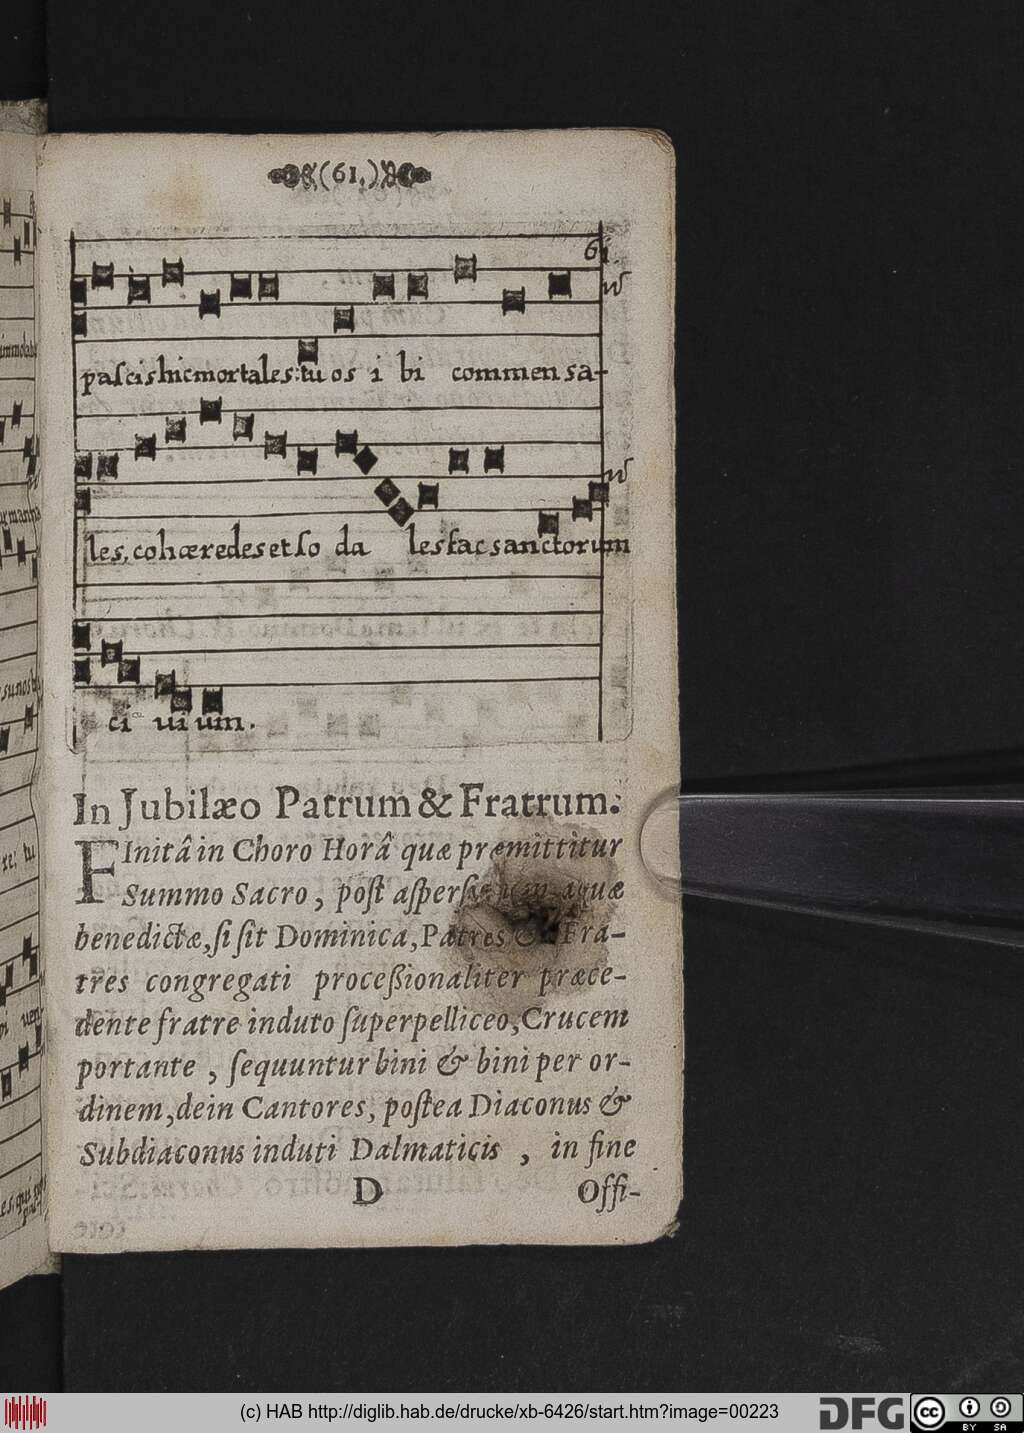 (61.)
61.
paſcis hic mortales: tuos i bi commensa-
les, cohæredes et ſo da les fac sanctorum
ci vium.
In Jubilæo Patrum & Fratrum.
FInitâ in Choro Horâ quæ præmittitur
Summo Sacro, poſt aſperſionem aquæ
benedictæ, ſi ſit Dominica, Patres & Fra-
tres congregati proceßionaliter præce-
dente fratre induto ſuperpelliceo, Crucem
portante, ſequuntur bini & bini per or-
dinem, dein Cantores, poſtea Diaconus &
Subdiaconus induti Dalmaticis, in fine
D Offi-
(c) HAB http://diglib.hab.de/drucke/xb-6426/start.htm?image=00223
DFG
cc BY SA